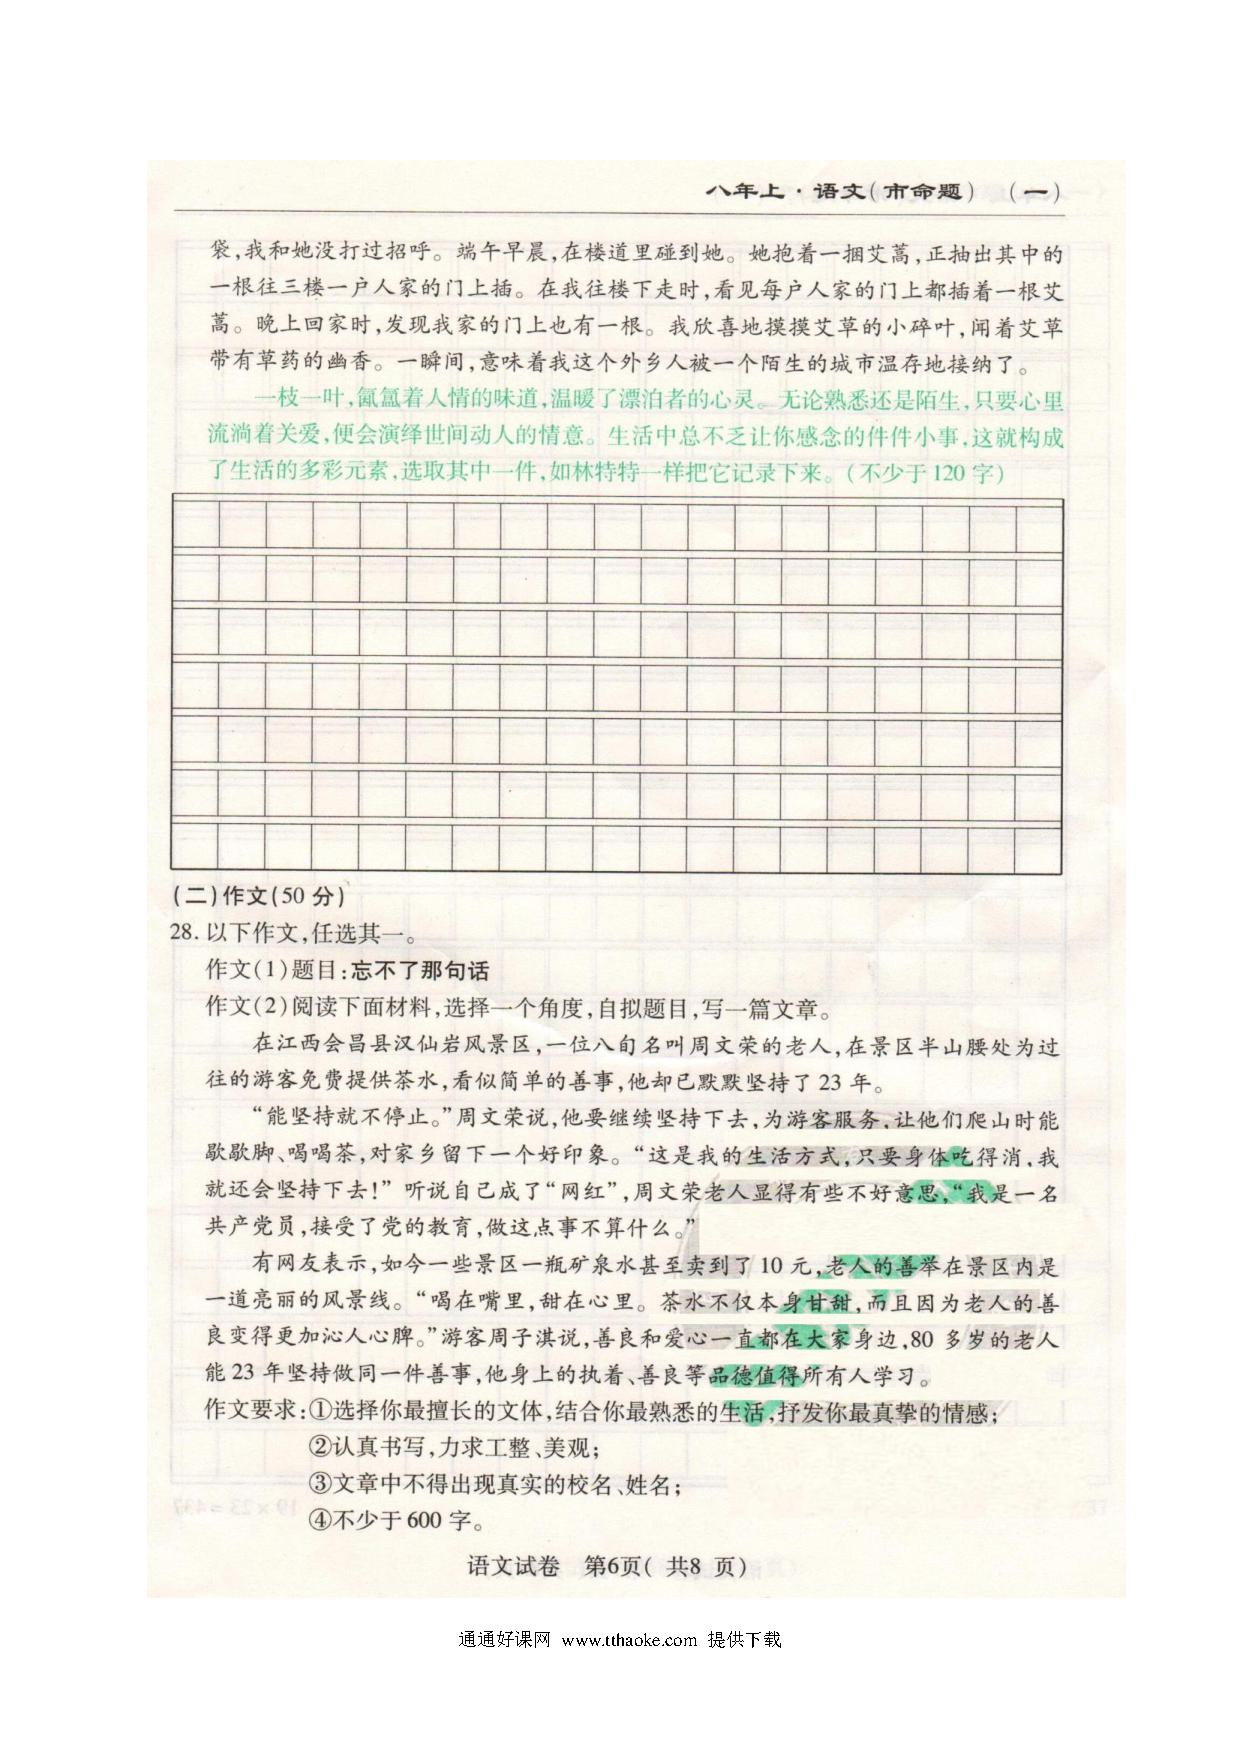 八年上·语文(市命题) (一)
袋,我和她没打过招呼。端午早晨,在楼道里碰到她。她抱着一捆艾蒿,正抽出其中的
一根往三楼一户人家的门上插。在我往楼下走时,看见每户人家的门上都插着一根艾
蒿。晚上回家时,发现我家的门上也有一根。我欣喜地摸摸艾草的小碎叶,闻着艾草
带有草药的幽香。一瞬间,意味着我这个外乡人被一个陌生的城市温存地接纳了。
一枝一叶,氤氲着人情的味道,温暖了漂泊者的心灵。无论熟悉还是陌生,只要心里
流淌着关爱,便会演绎世间动人的情意。生活中总不乏让你感念的件件小事,这就构成
了生活的多彩元素,选取其中一件,如林特特一样把它记录下来。(不少于120字)
(二)作文(50分)
28.以下作文,任选其一。
作文(1)题目:忘不了那句话
作文(2)阅读下面材料,选择一个角度,自拟题目,写一篇文章。
在江西会昌县汉仙岩风景区,一位八旬名叫周文荣的老人,在景区半山腰处为过
往的游客免费提供茶水,看似简单的善事,他却已默默坚持了23年。
“能坚持就不停止。”周文荣说,他要继续坚持下去,为游客服务,让他们爬山时能
歇歇脚、喝喝茶,对家乡留下一个好印象。“这是我的生活方式,只要身体吃得消,我
就还会坚持下去!”听说自己成了“网红”,周文荣老人显得有些不好意思,“我是一名
共产党员,接受了党的教育,做这点事不算什么。”
有网友表示,如今一些景区一瓶矿泉水甚至卖到了10元,老人的善举在景区内是
一道亮丽的风景线。“喝在嘴里,甜在心里。茶水不仅本身甘甜,而且因为老人的善
良变得更加沁人心脾。”游客周子淇说,善良和爱心一直都在大家身边,80多岁的老人
能23年坚持做同一件善事,他身上的执着、善良等品德值得所有人学习。
作文要求:①选择你最擅长的文体,结合你最熟悉的生活,抒发你最真挚的情感;
②认真书写,力求工整、美观;
③文章中不得出现真实的校名、姓名;
④不少于600字。
语文试卷 第6页( 共8 页)
通通好课网 www.tthaoke.com 提供下载